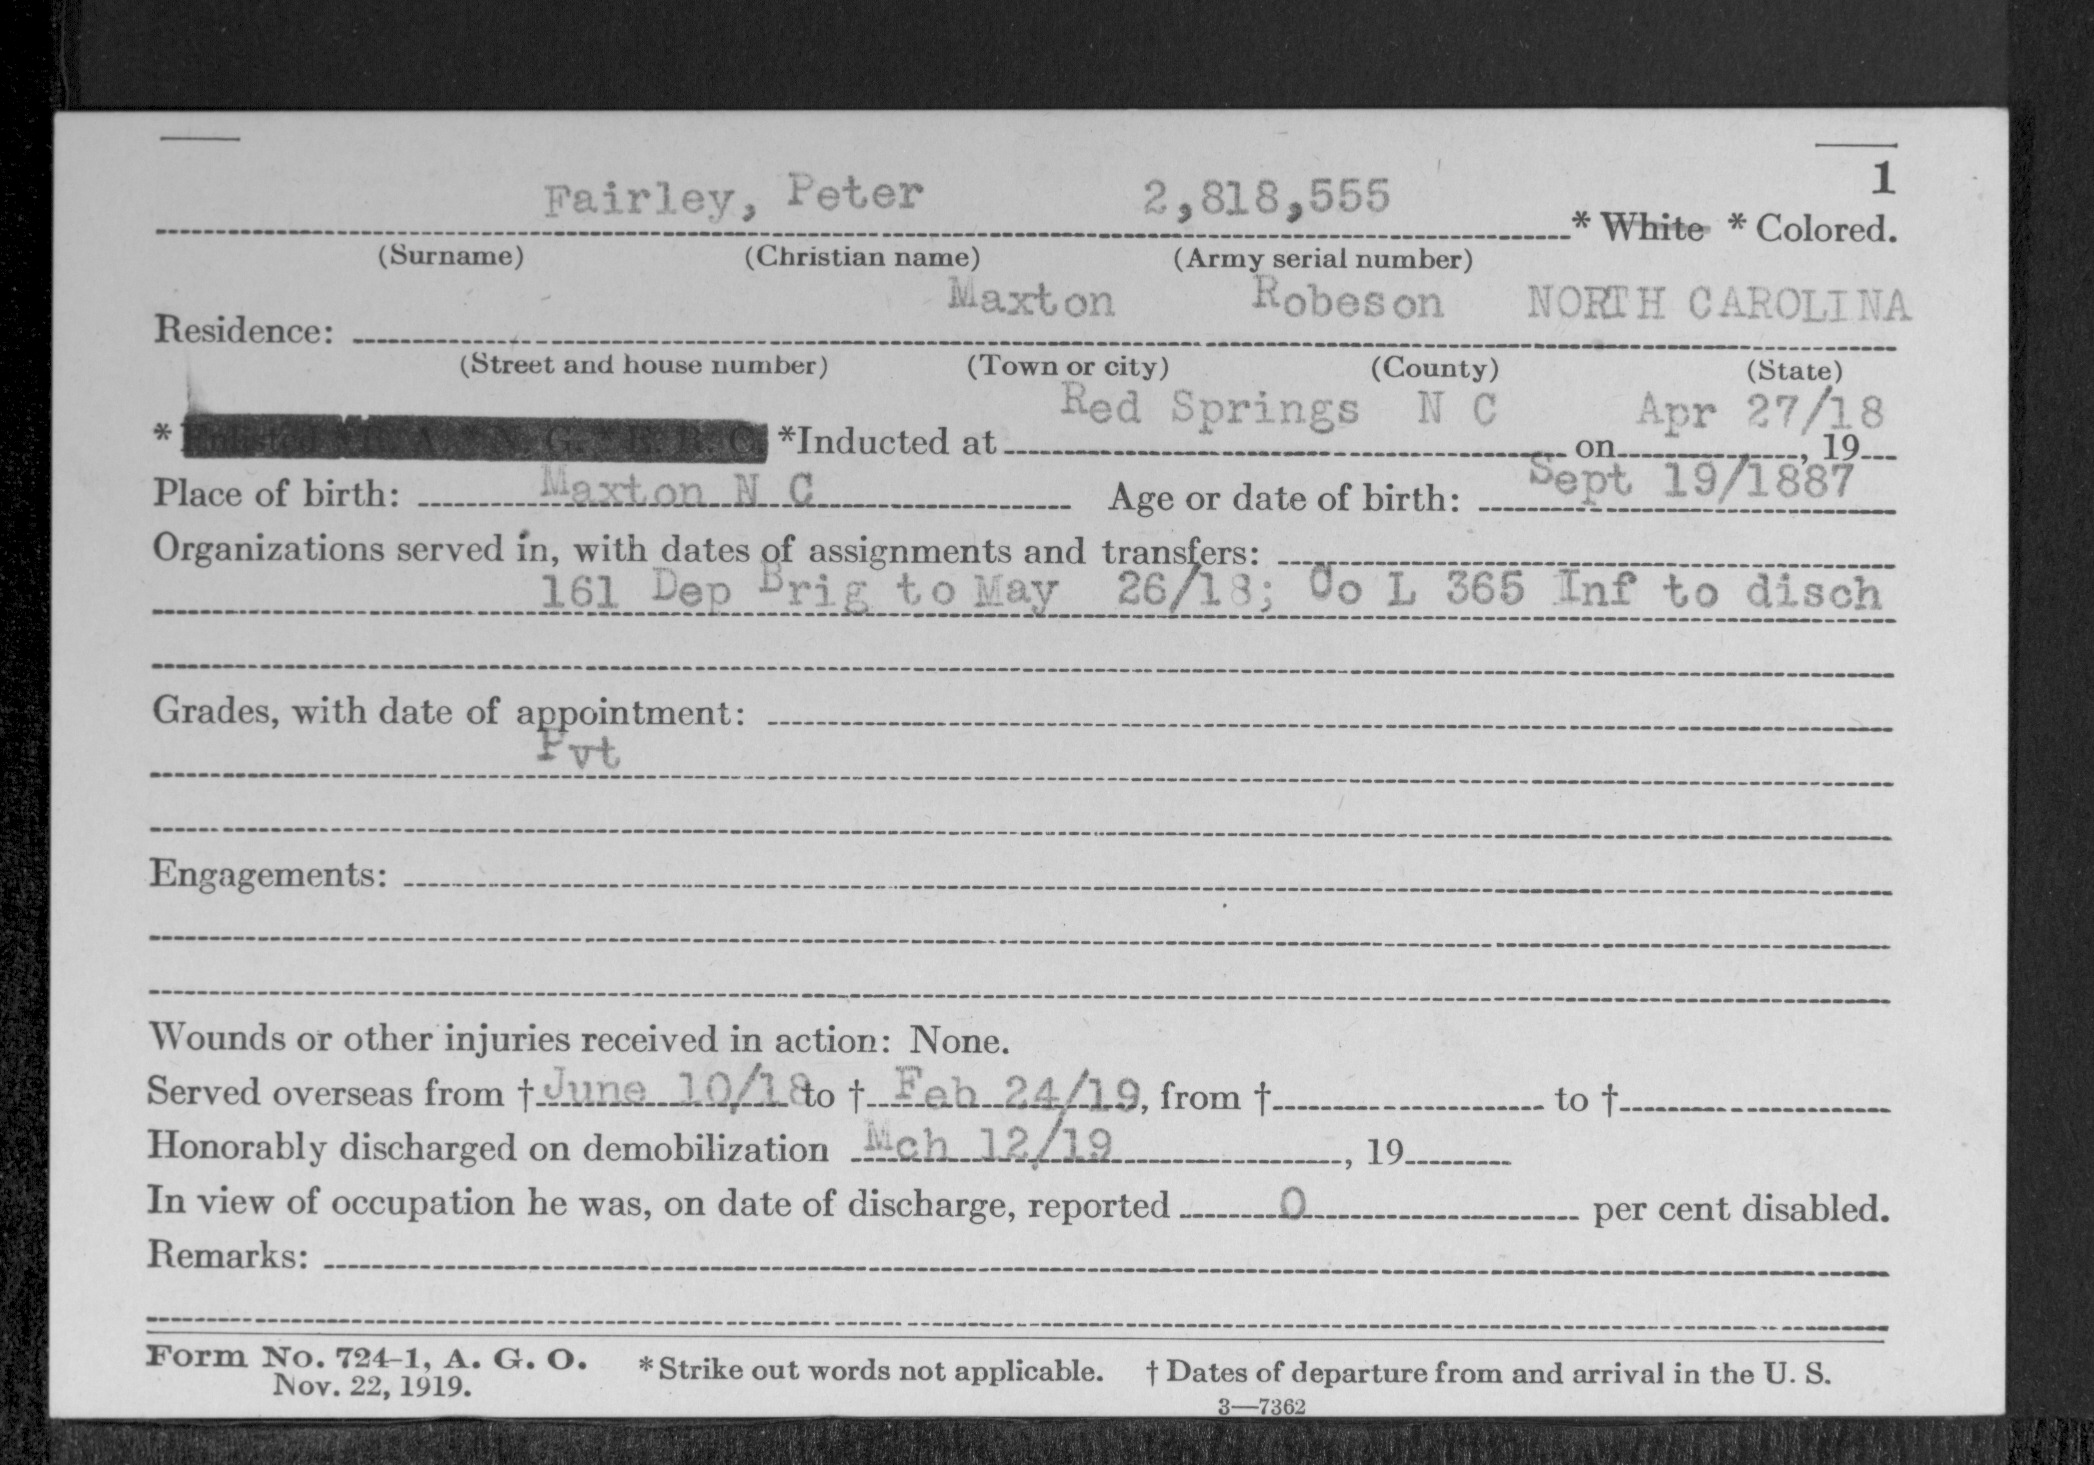 1
Fairley, Peter 2,818,555 * White * Colored.
(Surname) (Christian name) (Army serial number)
Residence: Maxton Robeson NORTH CAROLINA
(Street and house number) (Town or city) (County) (State)
* Enlisted R. A. N. G. * E. R. C. *Inducted at Red Springs N C on Apr 27/18, 19
Place of birth: Maxton N C Age or date of birth: Sept 19/1887
Organizations served in, with dates of assignments and transfers:
161 Dep Brig to May 26/18; Co L 365 Inf to disch
Grades, with date of appointment:
Pvt
Engagements:
Wounds or other injuries received in action: None.
Served overseas from † June 10/18 to † Feb 24/19, from † to †
Honorably discharged on demobilization Mch 12/19, 19
In view of occupation he was, on date of discharge, reported 0 per cent disabled.
Remarks:
Form No. 724-1, A. G. O. *Strike out words not applicable. † Dates of departure from and arrival in the U. S.
Nov. 22, 1919.
3—7362